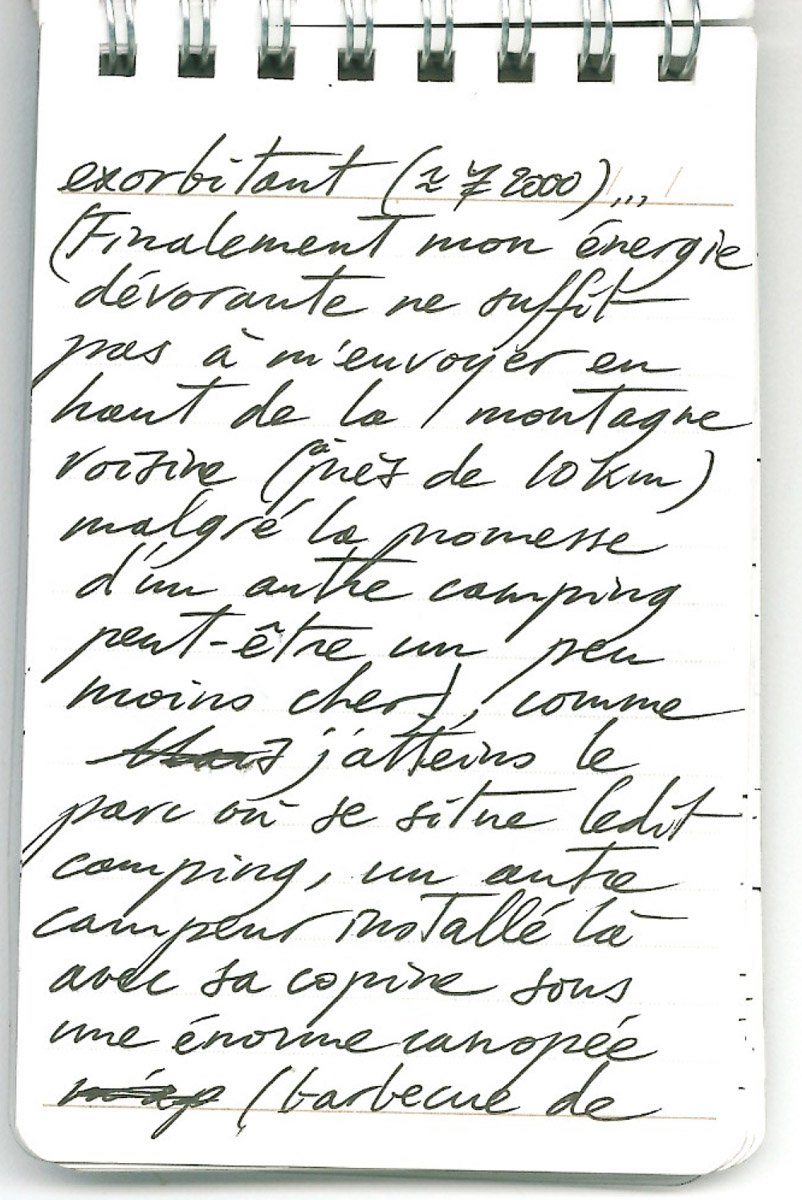 exorbitant (≈ ¥ 2000)...
(Finalement mon énergie
dévorante ne suffit
pas à m'envoyer en
haut de la montagne
voisine (à près de 10 km)
malgré la promesse
d'un autre camping
peut-être un peu
moins cher), comme
j'atteins le
parc où se situe ledit
camping, un autre
campeur installé là
avec sa copine sous
une énorme canopée
(barbecue de